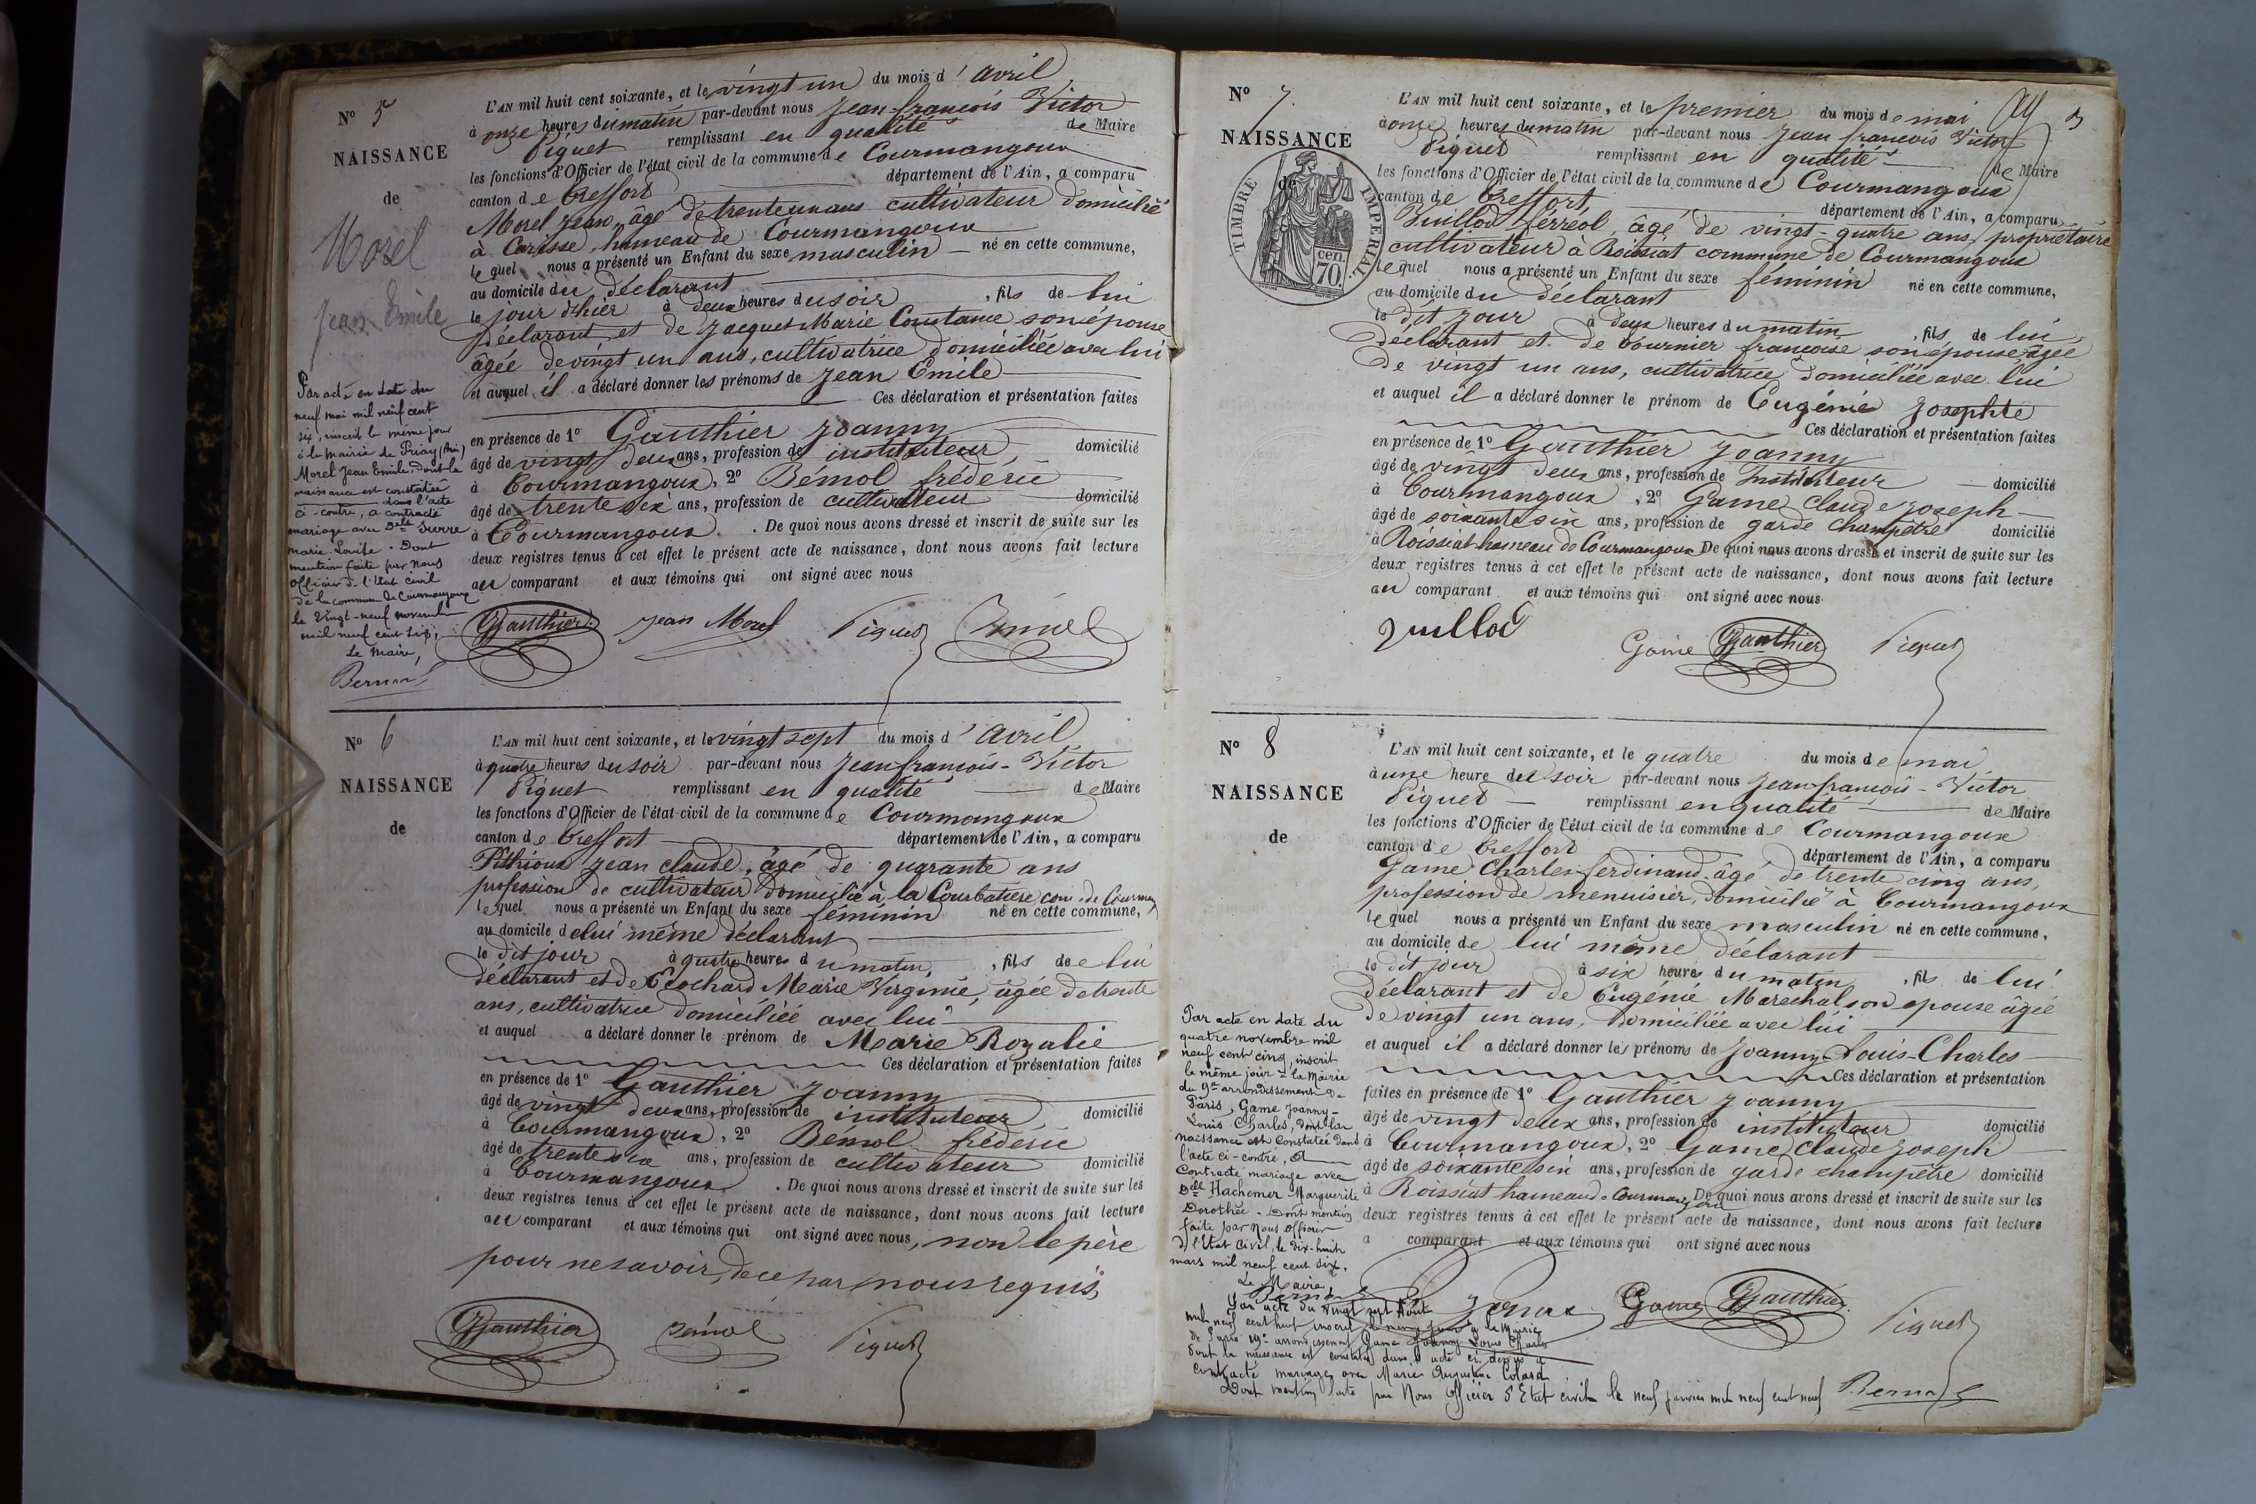 N° 5
NAISSANCE
de
Morel
Jean Emile
L'AN mil huit cent soixante, et le vingt un du mois d'avril
à onze heures du matin par-devant nous Jean-françois Victor
Piquet remplissant en qualité de Maire
les fonctions d'Officier de l'état civil de la commune de Courmangoux
canton de Treffort département de l'Ain, a comparu
Morel Jean, âgé de trente un ans cultivateur domicilié
à Carisse, hameau de Courmangoux
lequel nous a présenté un Enfant du sexe masculin né en cette commune,
au domicile du déclarant
le jour d'hier à deux heures du soir, fils de lui
déclarant et de Jacquet Marie Constance son épouse
âgée de vingt un ans, cultivatrice domiciliée avec lui
et auquel il a déclaré donner les prénoms de Jean Emile
Ces déclaration et présentation faites
en présence de 1° Gauthier Joanny
âgé de vingt deux ans, profession de instituteur domicilié
à Courmangoux, 2° Bémol frédéric
âgé de trente six ans, profession de cultivateur domicilié
à Courmangoux. De quoi nous avons dressé et inscrit de suite sur les
deux registres tenus à cet effet le présent acte de naissance, dont nous avons fait lecture
au comparant et aux témoins qui ont signé avec nous
Gauthier Jean Morel Piquet Bémol
Par acte en date du
neuf mai mil neuf cent
six, inscrit le même jour
à la mairie de Priay (Ain)
Morel Jean Emile, dont la
naissance est constatée
dans l'acte
ci-contre, a contracté
mariage avec Delle Surre
Marie Louise. Dont
mention faite par Nous
Officier de l'Etat civil
de la commune de Courmangoux
le vingt-neuf novembre
mil neuf cent six,
Le Maire,
Bernard
N° 6
NAISSANCE
de
L'AN mil huit cent soixante, et le vingt sept du mois d'avril
à quatre heures du soir par-devant nous Jean françois-Victor
Piquet remplissant en qualité de Maire
les fonctions d'Officier de l'état civil de la commune de Courmangoux
canton de Treffort département de l'Ain, a comparu
Pithioux Jean claude, âgé de quarante ans
profession de cultivateur domicilié à la Courbatière com. de Courmang
lequel nous a présenté un Enfant du sexe féminin né en cette commune,
au domicile de lui même déclarant
le dit jour à quatre heures du matin, fils de lui
déclarant et de Ecochard Marie Virginie, âgée de trente
ans, cultivatrice domiciliée avec lui
et auquel a déclaré donner le prénom de Marie Rozalie
Ces déclaration et présentation faites
en présence de 1° Gauthier Joanny
âgé de vingt deux ans, profession de instituteur domicilié
à Courmangoux, 2° Bémol frédéric
âgé de trente six ans, profession de cultivateur domicilié
à Courmangoux. De quoi nous avons dressé et inscrit de suite sur les
deux registres tenus à cet effet le présent acte de naissance, dont nous avons fait lecture
au comparant et aux témoins qui ont signé avec nous, non le père
pour ne savoir, de ce par nous requis
Gauthier Bémol Piquet
N° 7
NAISSANCE
de
TIMBRE IMPERIAL
70 cen.
3
L'AN mil huit cent soixante, et le premier du mois de mai
à onze heures du matin par-devant nous Jean françois Victor
Piquet remplissant en qualité de Maire
les fonctions d'Officier de l'état civil de la commune de Courmangoux
canton de Treffort département de l'Ain, a comparu
Guillod férréol, âgé de vingt-quatre ans, propriétaire
cultivateur à Roissiat commune de Courmangoux
lequel nous a présenté un Enfant du sexe féminin né en cette commune,
au domicile du déclarant
le dit jour à deux heures du matin, fils de lui
déclarant et de Tournier françoise son épouse âgée
de vingt un ans, cultivatrice domiciliée avec lui
et auquel il a déclaré donner le prénom de Eugénie Josephte
Ces déclaration et présentation faites
en présence de 1° Gauthier Joanny
âgé de vingt deux ans, profession de Instituteur domicilié
à Courmangoux, 2° Game Claude Joseph
âgé de soixante six ans, profession de garde champêtre domicilié
à Roissiat hameau de Courmangoux De quoi nous avons dressé et inscrit de suite sur les
deux registres tenus à cet effet le présent acte de naissance, dont nous avons fait lecture
au comparant et aux témoins qui ont signé avec nous
Guillod Game Gauthier Piquet
N° 8
NAISSANCE
de
L'AN mil huit cent soixante, et le quatre du mois de mai
à une heure du soir par-devant nous Jean-françois-Victor
Piquet remplissant en qualité de Maire
les fonctions d'Officier de l'état civil de la commune de Courmangoux
canton de Treffort département de l'Ain, a comparu
Game Charles ferdinand âgé de trente cinq ans,
profession de menuisier, domicilié à Courmangoux
lequel nous a présenté un Enfant du sexe masculin né en cette commune,
au domicile de lui même déclarant
le dit jour à six heures du matin, fils de lui
déclarant et de Eugénie Marechal son épouse âgée
de vingt un ans, domiciliée avec lui
et auquel il a déclaré donner les prénoms de Joanny-Louis-Charles
Ces déclaration et présentation
faites en présence de 1° Gauthier Joanny
âgé de vingt deux ans, profession de instituteur domicilié
à Courmangoux, 2° Game Claude Joseph
âgé de soixante six ans, profession de garde champêtre domicilié
à Roissiat hameau de Courmangoux De quoi nous avons dressé et inscrit de suite sur les
deux registres tenus à cet effet le présent acte de naissance, dont nous avons fait lecture
a comparant et aux témoins qui ont signé avec nous
Game Gauthier Piquet
Par acte en date du
quatre novembre mil
neuf cent cinq, inscrit
le même jour à la Mairie
du 9e arrondissement de
Paris, Game Joanny-
Louis Charles, dont la
naissance est constatée dans
l'acte ci-contre, a
contracté mariage avec
Delle Hachemer Marguerite
Dorothée. Dont mention
faite par nous officier
de l'Etat civil, le dix-huit
mars mil neuf cent six.
Le Maire,
Bernard
Par acte du vingt sept Août
mil neuf cent huit inscrit le même jour à la Mairie
de Paris 19e arrondissement Game Joanny Louis Charles
dont la naissance est constatée dans l'acte ci-dessus a
contracté mariage avec Marie Augustine Colard
Dont mention faite par Nous Officier d'Etat civil le neuf janvier mil neuf cent neuf Bernard